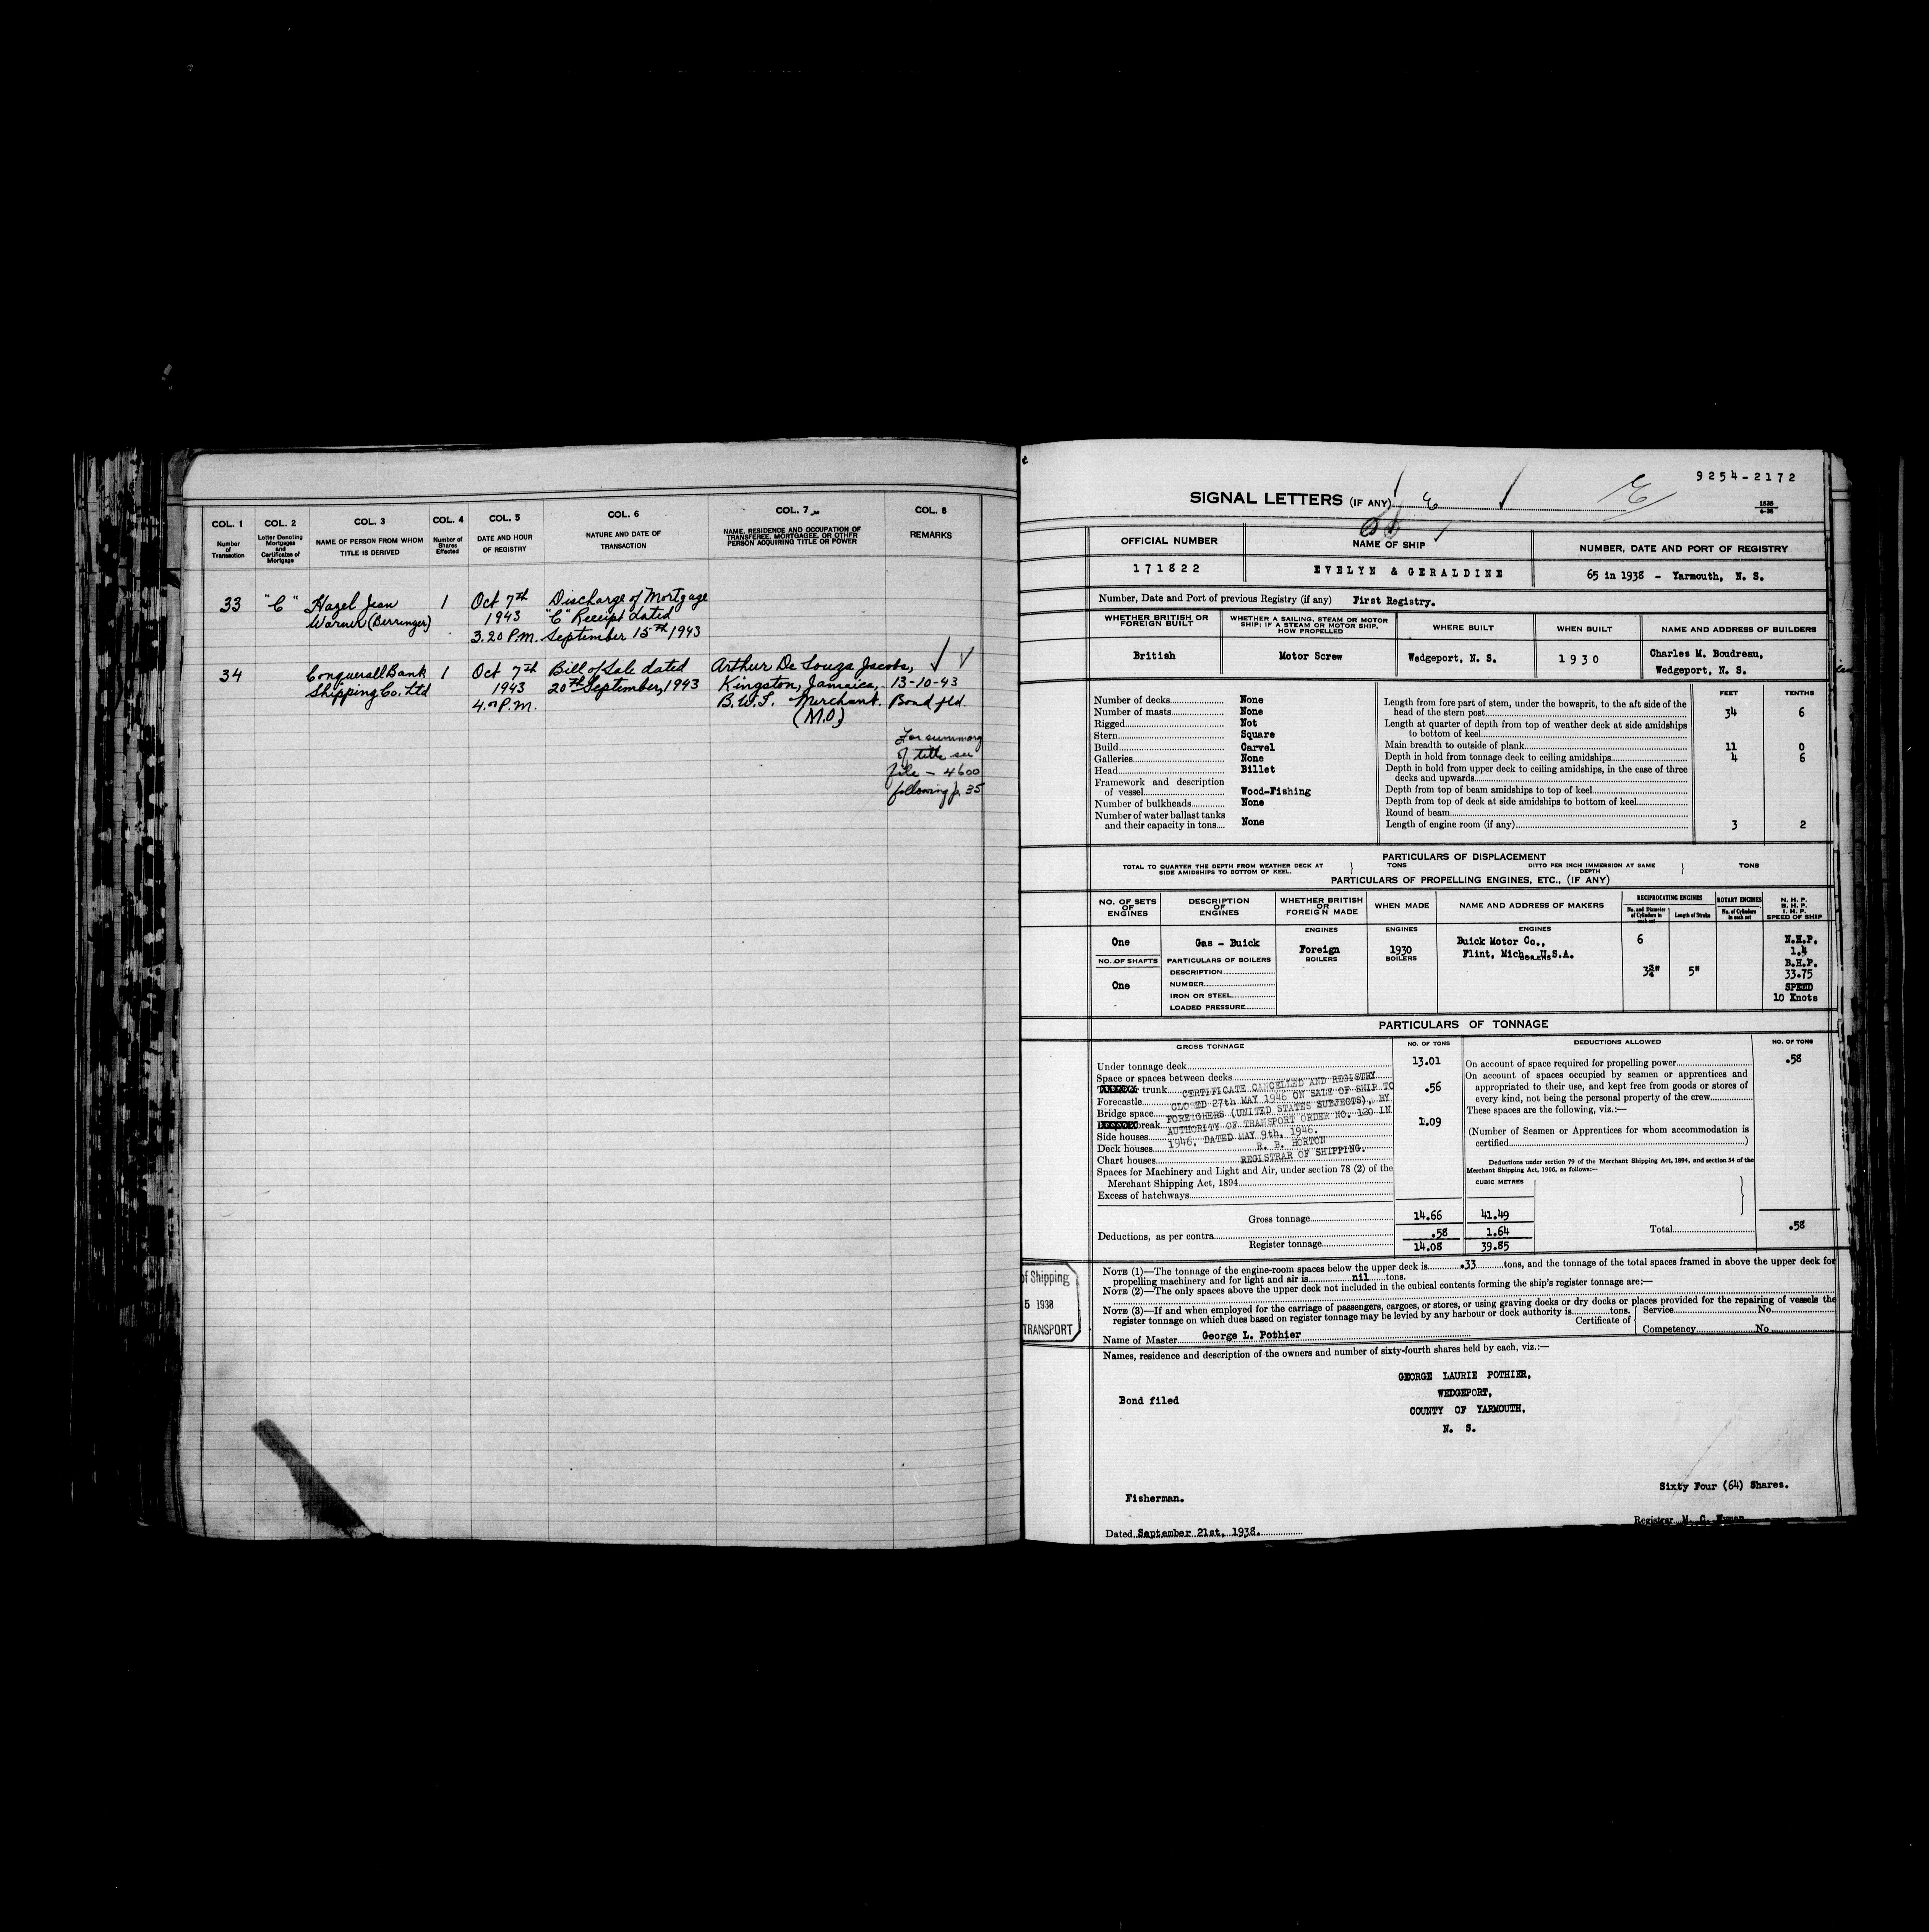 COL. 1
Number
of
Transaction
COL. 2
Letter Denoting
Mortgages
and
Certificates of
Mortgage
COL. 3
NAME OF PERSON FROM WHOM
TITLE IS DERIVED
COL. 4
Number of
Shares
Effected
COL. 5
DATE AND HOUR
OF REGISTRY
COL. 6
NATURE AND DATE OF
TRANSACTION
COL. 7
NAME, RESIDENCE AND OCCUPATION OF
TRANSFEREE, MORTGAGEE, OR OTHER
PERSON ACQUIRING TITLE OR POWER
COL. 8
REMARKS
33 "C" Hazel Jean 1 Oct 7th Discharge of Mortgage
Warner (Berringer) 1943 "C" Receipt dated
3.20 P.M. September 15th 1943
34 Conquerall Bank 1 Oct 7th Bill of Sale dated Arthur De Souza Jacobs,
Shipping Co. Ltd 1943 20th September, 1943 Kingston, Jamaica, 13-10-43
4.00 P.M. B.W.I. Merchant. Bond fld.
(M.O)
For summary
of title see
file - 4600
following p. 35
9254-2172
SIGNAL LETTERS (IF ANY)
1535
6-38
OFFICIAL NUMBER
NAME OF SHIP
NUMBER, DATE AND PORT OF REGISTRY
171822
EVELYN & GERALDINE
65 in 1938 - Yarmouth, N. S.
Number, Date and Port of previous Registry (if any) First Registry.
WHETHER BRITISH OR
FOREIGN BUILT
WHETHER A SAILING, STEAM OR MOTOR
SHIP; IF A STEAM OR MOTOR SHIP,
HOW PROPELLED
WHERE BUILT
WHEN BUILT
NAME AND ADDRESS OF BUILDERS
British
Motor Screw
Wedgeport, N. S.
1930
Charles M. Boudreau,
Wedgeport, N. S.
FEET TENTHS
Number of decks None
Number of masts None
Rigged Not
Stern Square
Build Carvel
Galleries None
Head Billet
Framework and description
of vessel Wood-Fishing
Number of bulkheads None
Number of water ballast tanks
and their capacity in tons None
Length from fore part of stem, under the bowsprit, to the aft side of the
head of the stern post 34 6
Length at quarter of depth from top of weather deck at side amidships
to bottom of keel
Main breadth to outside of plank 11 0
Depth in hold from tonnage deck to ceiling amidships 4 6
Depth in hold from upper deck to ceiling amidships, in the case of three
decks and upwards
Depth from top of beam amidships to top of keel
Depth from top of deck at side amidships to bottom of keel
Round of beam
Length of engine room (if any) 3 2
PARTICULARS OF DISPLACEMENT
TOTAL TO QUARTER THE DEPTH FROM WEATHER DECK AT
SIDE AMIDSHIPS TO BOTTOM OF KEEL.
TONS
DITTO PER INCH IMMERSION AT SAME
DEPTH
TONS
PARTICULARS OF PROPELLING ENGINES, ETC., (IF ANY)
NO. OF SETS
OF
ENGINES
DESCRIPTION
OF
ENGINES
WHETHER BRITISH
OR
FOREIGN MADE
WHEN MADE
NAME AND ADDRESS OF MAKERS
RECIPROCATING ENGINES
No. and Diameter
of Cylinders in
each set
Length of Stroke
ROTARY ENGINES
No. of Cylinders
in each set
N. H. P.
B. H. P.
I. H. P.
SPEED OF SHIP
ENGINES ENGINES ENGINES
One
Gas - Buick
Foreign
1930
Buick Motor Co.,
Flint, Mich. U.S.A.
6
N.H.P.
1.4
B.H.P.
33.75
SPEED
10 Knots
NO. OF SHAFTS
PARTICULARS OF BOILERS
BOILERS BOILERS BOILERS
One
DESCRIPTION
NUMBER
IRON OR STEEL
LOADED PRESSURE
3¾" 5"
PARTICULARS OF TONNAGE
GROSS TONNAGE
NO. OF TONS
DEDUCTIONS ALLOWED
NO. OF TONS
Under tonnage deck 13.01
Space or spaces between decks
trunk .56
Forecastle
Bridge space
break 1.09
Side houses
Deck houses
Chart houses
Spaces for Machinery and Light and Air, under section 78 (2) of the
Merchant Shipping Act, 1894
Excess of hatchways
CERTIFICATE CANCELLED AND REGISTRY
CLOSED 27th MAY 1946 ON SALE OF SHIP TO
FOREIGNERS (UNITED STATES SUBJECTS), BY
AUTHORITY OF TRANSPORT ORDER NO. 120 IN
1946, DATED MAY 9th, 1946.
R. B. HORTON
REGISTRAR OF SHIPPING.
On account of space required for propelling power .58
On account of spaces occupied by seamen or apprentices and
appropriated to their use, and kept free from goods or stores of
every kind, not being the personal property of the crew
These spaces are the following, viz.:—
(Number of Seamen or Apprentices for whom accommodation is
certified )
Deductions under section 79 of the Merchant Shipping Act, 1894, and section 54 of the
Merchant Shipping Act, 1906, as follows:—
CUBIC METRES
Gross tonnage 14.66 41.49
Deductions, as per contra .58 1.64
Register tonnage 14.08 39.85
Total .58
of Shipping
5 1938
TRANSPORT
NOTE (1)—The tonnage of the engine-room spaces below the upper deck is .33 tons, and the tonnage of the total spaces framed in above the upper deck for
propelling machinery and for light and air is nil tons.
NOTE (2)—The only spaces above the upper deck not included in the cubical contents forming the ship's register tonnage are:—
NOTE (3)—If and when employed for the carriage of passengers, cargoes, or stores, or using graving docks or dry docks or places provided for the repairing of vessels the
register tonnage on which dues based on register tonnage may be levied by any harbour or dock authority is tons.
Certificate of
Service No.
Competency No.
Name of Master George L. Pothier
Names, residence and description of the owners and number of sixty-fourth shares held by each, viz.:—
GEORGE LAURIE POTHIER,
WEDGEPORT,
COUNTY OF YARMOUTH,
N. S.
Bond filed
Fisherman.
Sixty Four (64) Shares.
Dated September 21st, 1938.
Registrar M. C.